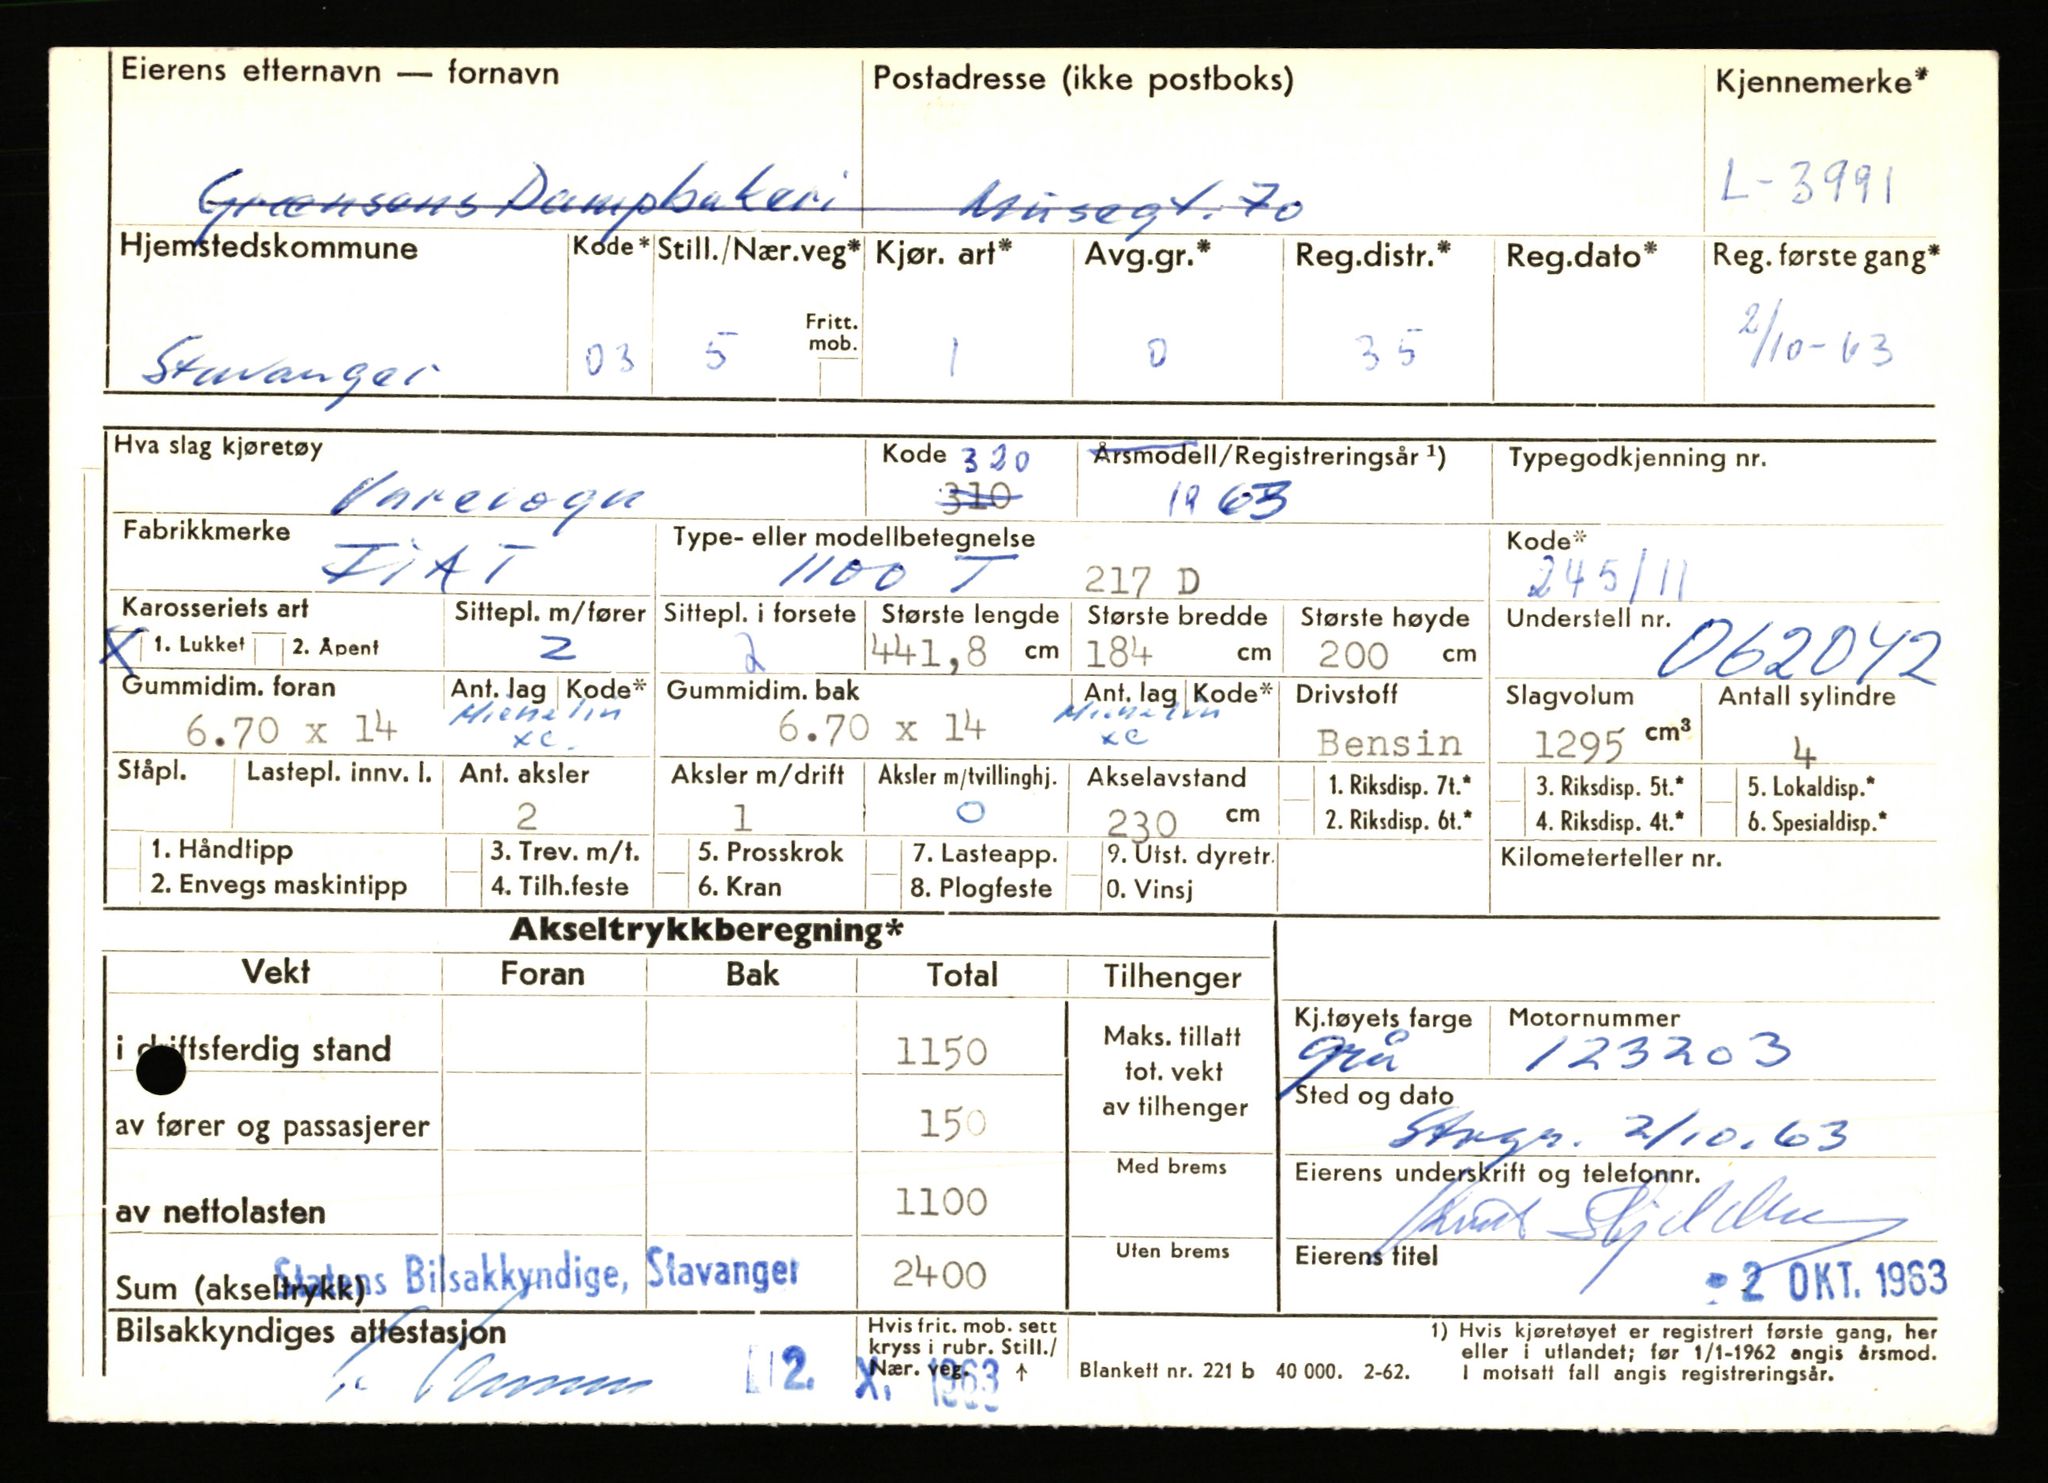 Eierens etternavn — fornavn Postadresse (ikke postboks) Kjennemerke*
Grænsens Dampbakeri Musegt. 70 L-3991
Hjemstedskommune Kode* Still./Nær.veg* Kjør. art* Avg.gr.* Reg.distr.* Reg.dato* Reg. første gang*
Fritt. mob.
Stavanger 03 5 1 0 35 2/10-63
Hva slag kjøretøy Kode Årsmodell/Registreringsår 1) Typegodkjenning nr.
Varevogn 310 320 1963
Fabrikkmerke Type- eller modellbetegnelse Kode*
FIAT 1100 T 217 D 245/11
Karosseriets art Sittepl. m/fører Sittepl. i forsete Største lengde Største bredde Største høyde Understell nr.
X 1. Lukket 2. Åpent 2 2 441,8 cm 184 cm 200 cm 062042
Gummidim. foran Ant. lag Kode* Gummidim. bak Ant. lag Kode* Drivstoff Slagvolum Antall sylindre
6.70 x 14 Michelin xc. 6.70 x 14 Michelin xc Bensin 1295 cm³ 4
Ståpl. Lastepl. innv. l. Ant. aksler Aksler m/drift Aksler m/tvillinghj. Akselavstand 1. Riksdisp. 7t.* 3. Riksdisp. 5t.* 5. Lokaldisp.*
2 1 0 230 cm 2. Riksdisp. 6t.* 4. Riksdisp. 4t.* 6. Spesialdisp.*
1. Håndtipp 3. Trev. m/t. 5. Prosskrok 7. Lasteapp. 9. Utst. dyretr. Kilometerteller nr.
2. Envegs maskintipp 4. Tilh.feste 6. Kran 8. Plogfeste 0. Vinsj
Akseltrykkberegning*
Vekt Foran Bak Total Tilhenger
i driftsferdig stand 1150 Maks. tillatt tot. vekt av tilhenger
Kj.tøyets farge Motornummer
grå 123203
av fører og passasjerer 150
Sted og dato
Stvgr. 2/10.63
Med brems
av nettolasten 1100
Eierens underskrift og telefonnr.
Knut
Uten brems
Eierens titel
Sum (akseltrykk) 2400
Statens Bilsakkyndige, Stavanger
- 2 OKT. 1963
Bilsakkyndiges attestasjon
2. X. 1963
Hvis frit. mob. sett
kryss i rubr. Still./
Nær. veg. ↑
Blankett nr. 221 b 40 000. 2-62.
1) Hvis kjøretøyet er registrert første gang, her
eller i utlandet; før 1/1-1962 angis årsmod.
I motsatt fall angis registreringsår.